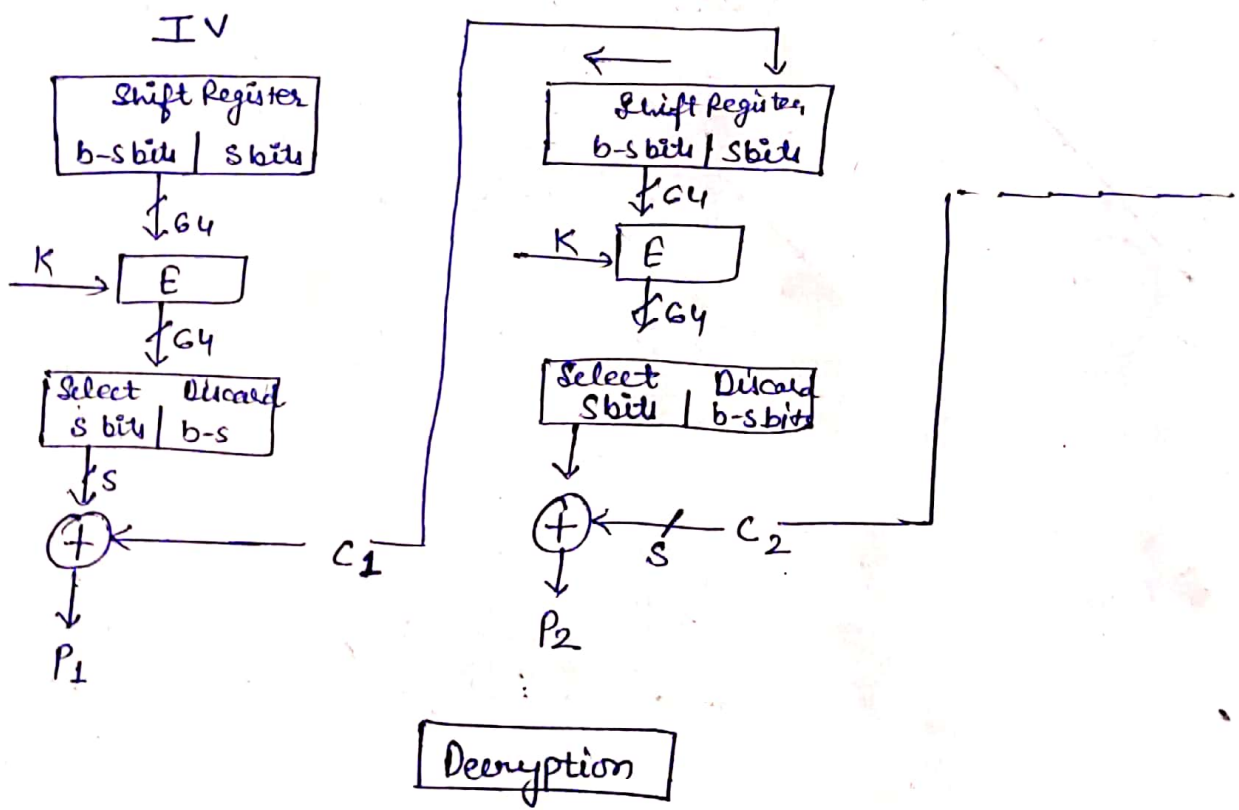 IV
Shift Register
b-s bits | s bits
64
K
E
64
Select Discard
s bits | b-s
S
C1
P1
Shift Register
b-s bits | s bits
64
K
E
64
Select Discard
S bits | b-s bits
S
C2
P2
Decryption